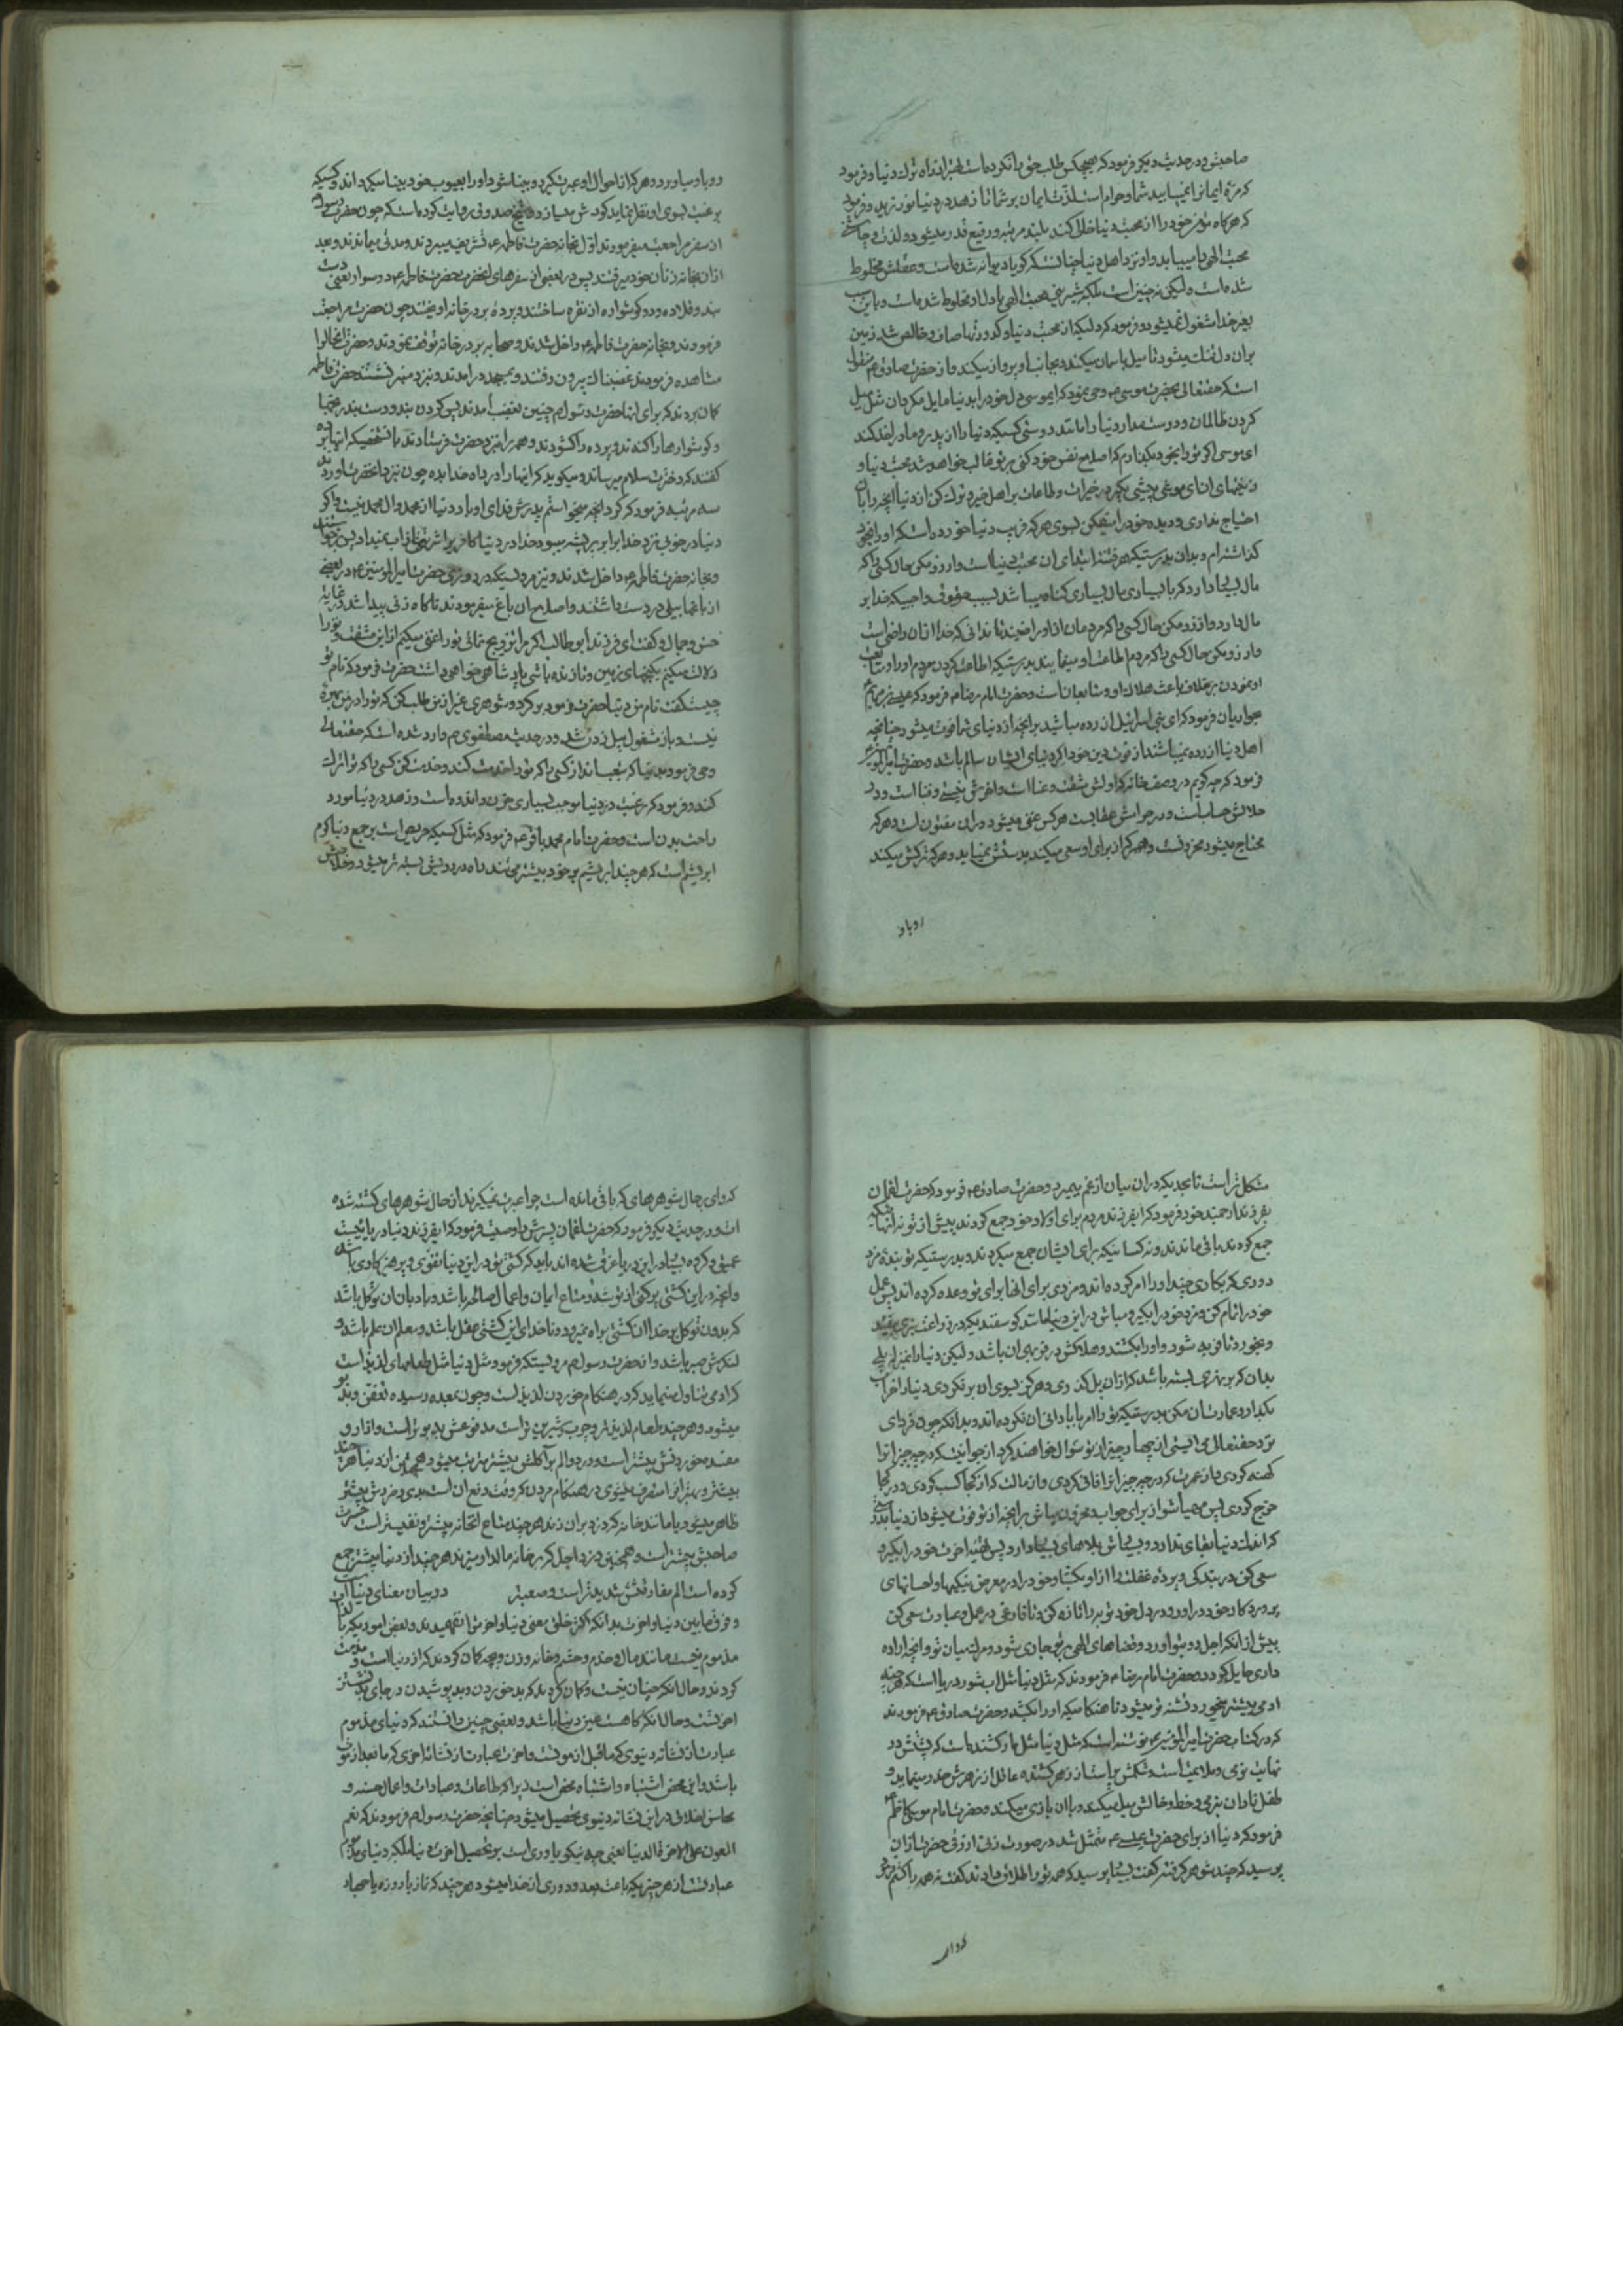 صاحبش و در حدیث دیگر فرمود که هیچکس طلب حق را نکرده است بهتر از راه ترک دنیا و فرمود
که مزه ایمانرا نمییابید شما و حرام است لذت ایمان بر شما تا زهد در دنیا نورزید و فرمود
که هرگاه مؤمن خود را از محبت دنیا خالی کند بلند مرتبه و رفیع قدر میشود و لذت و چاشنی
محبت الهی را مییابد و او نزد اهل دنیا چنانست که گویا دیوانه شده است و عقلش مخلوط
شده است و لیکن نه چنین است بلکه شیرینی محبت الهی با دل او مخلوط شده است و باین سبب
بغیر خدا مشغول نمیشود و فرمود که دلیکه از محبت دنیا و کدورتها صاف و خالص شد زمین
بران دل تنک میشود تا میل باسمان میکند و بجانب او پرواز میکند و از حضرت صادق ع م منقول
است که حقتعالی بحضرت موسی ع وحی نمود که ایموسی دل خود را بدنیا مایل مکردان مثل میل
کردن ظالمان و دوست مدار دنیا را مانند دوستی کسیکه دنیا را از پدر و مادر اخذ کند
ای موسی اگر تو را بخود بکذارم که اصلاح نفس خود کنی بر تو غالب خواهد شد محبت دنیا و
زینتهای ان ای موسی پیشی بگیر در خیرات و طاعات بر اهل خیر و ترک کن از دنیا انچه را بان
احتیاج نداری و دیده خود را میفکن بسوی هر که فریب دنیا خورده است که او را بخود
گذاشته‌ام و بدان بدرستیکه هر فتنه ابتدای ان محبت دنیا است و ارزو مکن حال کسی را که
مال بسیار دارد که با بسیاری مال بسیاری گناه میباشد بسبب حقوق واجبیکه خدا بر
مال دارد و ارزو مکن حال کسی را که مردمان از او راضیند تا ندانی که خدا از ان راضی است
و ارزو مکن حال کسی را که مردم اطاعت او مینمایند بدرستیکه اطاعت کردن مردم او را و متابعت
او نمودن بر خلاف باعث هلاک او و متابعان است و حضرت امام رضا م فرمود که عیسی بن مریم
بحواریان فرمود که ای بنی اسرائیل ازرده مباشید بر انچه از دنیای شما فوت میشود چنانچه
اهل دنیا ازرده نمیباشند از فوت دین خود اگر دنیای ایشان سالم باشد و حضرت امیرالمؤمنین
فرمود که چه گویم در وصف خانه که اولش مشقت و عنا است و اخرش نیستی و فنا است و در
حلالش حساب است و در حرامش عقابست هر کس غنی میشود در ان مفتون است و هر که
محتاج میشود محزونست و هر که از برای او سعی میکند بدستش نمیاید و هر که ترکش میکند
رو باو
رو باو میاورد و هر که از احوال او عبرت گیرد و بینا شود او را بعیوب خود بینا میگرداند و کسیکه
برغبت بسوی او نظر نماید کورش میسازد و شیخ صدوق روایت کرده است که چون حضرت رسول م
از سفر مراجعت میفرمودند اول بخانه حضرت فاطمه ع تشریف میبردند و مدتی میماندند و بعد
از ان بخانه زنان خود میرفتند پس در بعضی از سفرهای انحضرت حضرت فاطمه ع دو سوار یعنی دست
بند و قلاده و دو گوشواره از نقره ساختند و پرده بر در خانه اویختند چون حضرت مراجعت
فرمودند و بخانه حضرت فاطمه ع داخل شدند و صحابه بر در خانه توقف نمودند و حضرت انحالرا
مشاهده فرمودند غضبناک بیرون رفتند و بمسجد درامدند و نزد منبر نشستند حضرت فاطمه
گمان بردند که برای اینها حضرت رسول م چنین بغضب امدند پس گردن بند و دست بندها
و گوشوارها را کندند و پرده را گشودند و همه را نزد حضرت فرستادند بانشخصیکه اینها برده
گفتند که دخترت سلام میرساند و میگوید که اینها را در راه خدا بده چون نزد انحضرت اوردند
سه مرتبه فرمود که کرد انچه میخواستم پدرش فدای او باد دنیا از محمد و ال محمد نیست و اگر
دنیا در خوبی نزد خدا برابر پر پشه میبود خدا در دنیا کافر را شربتی از اب نمیداد پس برخواستند
و بخانه حضرت فاطمه ع داخل شدند و نیز مرویستکه در روزی حضرت امیرالمؤمنین ع در بعضی
از باغها بیلی در دست داشتند و اصلاح ان باغ میفرمودند ناگاه زنی پیدا شد در غایة
حسن و جمال و گفت ای فرزند ابو طالب اگر مرا تزویج نمائی تو را غنی میکنم از این مشقت و تو را
دلالت میکنم بگنجهای زمین و تا زنده باشی پادشاهی خواهی داشت حضرت فرمود که نام تو
چیست گفت نام من دنیا حضرت فرمود برگرد و شوهری غیر از من طلب کن که تو را در من بهره
نیست و باز مشغول بیل زدن شد و در حدیث مصطفوی م وارد شده است که حقتعالی
وحی فرمود بدنیا که بتعب انداز کسی را که تو را خدمت کند و خدمت کن کسی را که تو را ترک
کند و فرمود که رغبت در دنیا موجب بسیاری حزن و اندوه است و زهد در دنیا مورد
راحت بدن است و حضرت امام محمد باقر ع فرمود که مثل کسیکه حریص است بر جمع دنیا کرم
ابریشم است که هر چند ابریشم بر خود بیشتر می‌تند راه در رویش بسته تر میشود و خلاصش
مشکل تر است تا بحدیکه در ان میان از غم بمیرد و حضرت صادق ع فرمود که حضرت لقمان
بفرزند ارجمند خود فرمود که ایفرزند مردم برای اولاد خود جمع کردند پیش از تو نه انها که
جمع کردند باقی ماندند و نه کسانیکه برای ایشان جمع میکردند و بدرستیکه تو بنده مزد
دوری که بکاری چند او را امر کرده‌اند و مزدی برای انها برای تو وعده کرده اند پس عمل
خود را تمام کن و مزد خود را بگیر و مباش در این دنیا مانند گوسفندیکه در زراعت سبزی بیفتد
و بخورد تا فربه شود و او را بکشند و هلاکش در فربهی ان باشد و لیکن دنیا را بمنزله پلی
بدان که بر نهری بسته باشد که از ان پل گذری و هرگز بسوی ان برنگردی دنیا را خراب
بگذار و عمارت ان مکن بدرستیکه تو را امر بابادانی ان نکرده‌اند و بدانکه چون فردای
نزد حقتعالی می ایستی از چهار چیز از تو سؤال خواهند کرد از جوانیت که در چه چیز انرا
کهنه کردی و از عمرت که در چه چیز انرا فانی کردی و از مالت که از کجا کسب کردی و در کجا
خرج کردی پس مهیا شو از برای جواب و محزون مباش بر انچه از تو فوت میشود از دنیا بدرستی
که اندک دنیا بقای ندارد و بسیارش بلاهای بسیار دارد پس تهیه اخرت خود را بگیر و
سعی کن در بندگی و پرده غفلت را از رو بگشا و خود را در معرض نیکیها و احسانهای
پروردگار خود دراور و در دل خود توبه را تازه کن و تا فارغی در عمل و عبادت سعی کن
پیش از انکه اجل رو بتو اورد و قضاهای الهی بر تو جاری شود و مرک میان تو و انچه اراده
داری حایل گردد و حضرت امام رضا م فرمودند که مثل دنیا مثل اب شور دریا است که هر چند
ادمی بیشتر میخورد تشنه تر میشود تا هنگامیکه او را بکشد و حضرت صادق ع فرمودند
که در کتاب حضرت امیرالمؤمنین ع نوشته است که مثل دنیا مثل مار کشنده است که پشتش در
نهایت نرمی و ملایمت است و شکمش پر است از زهر کشنده عاقل از زهرش حذر مینماید و
طفل نادان بنرمی و خط و خالش میل میکند و با ان بازی میکند و حضرت امام موسی کاظم ع
فرمود که دنیا از برای حضرت عیسی ع متمثل شد در صورت زنی ازرقی حضرت از ان
پرسید که چند شوهر گرفته گفت بسیار پرسید که همه تو را طلاق دادند گفت نه همه را کشتم فرمود
که وای
که وای بحال شوهرهای که باقی مانده است چرا عبرت نمیگیرند از حال شوهرهای کشته شده
ات و در حدیث دیگر فرمود که حضرت لقمان پسرش را وصیت فرمود که ایفرزند دنیا دریائیست
عمیق و گروه بسیار در این دریا غرق شده اند باید که کشتی تو در این دنیا تقوی و پرهیزکاری باشد
و انچه در این کشتی پر کنی از توشه و متاع ایمان و اعمال صالحه باشد و بادبان ان توکل باشد
که بدون توکل بر خدا ان کشتی براه نمیرود و ناخدای این کشتی عقل باشد و معلم ان علم باشد و
لنگرش صبر باشد و از حضرت رسول م مرویستکه فرمود مثل دنیا مثل طعامهای لذیذ است
که ادمی تناول مینماید که در هنگام خوردن لذیذ است و چون بمعده رسیده تعفن و بد بو
میشود و هر چند طعام لذیذتر و چرب و شیرین تر است مدفوعش بدبوتر است و ازار و
مفسده خوردنش بیشتر است و درد و الم بر آکلش بیشتر مترتب میشود همچنین از دنیا هر چند
بیشتر و بهتر انرا متصرف میشوی در هنگام مردن که وقت دفع ان است بدی و ضررش بیشتر
ظاهر میشود یا مانند خانه که دزد بران زند هر چند متاع انخانه بیشتر و نفیستر است حسرت
صاحبش بیشتر است و همچنین دزد اجل که بر خانه مالدار میزند هر چند از دنیا بیشتر جمع
کرده است الم مفارقتش شدیدتر است و صعبتر در بیان معنای دنیا است
و فرق مابین دنیا و اخرت بدانکه اکثر خلق معنی دنیا و اخرت را نفهمیدند و بعض اموریکه بالذات
مذموم نیست مانند مال و خدم و حشم و خانه و زن و بچه گمان کردند که از دنیا است و مذمت
کردند و حال انکه چنان نیست و گمان کردند که بد خوردن و بد پوشیدن در جای بد نشستن
اخرتست و حال انکه گاهست عین دنیا باشد و بعضی چنین دانستند که دنیای مذموم
عبارت از نشاته دنیوی که ماقبل از موتست و اخرت عبارت از نشاته اخری که مابعد از موت
باشد و این محض اشتباه و اشتباه محض است زیرا که طاعات و عبادات و اعمال حسنه و
محاسن اخلاق در این نشاته دنیوی تحصیل میشود چنانچه حضرت رسول م فرمودند که نعم
العون علی الاخرة الدنیا یعنی چه نیکو یاوری است بر تحصیل اخرت دنیا بلکه دنیای مذموم
عبارتست از هر چیزیکه باعث بعد و دوری از خدا میشود هر چند که نماز یا روزه یا جهاد